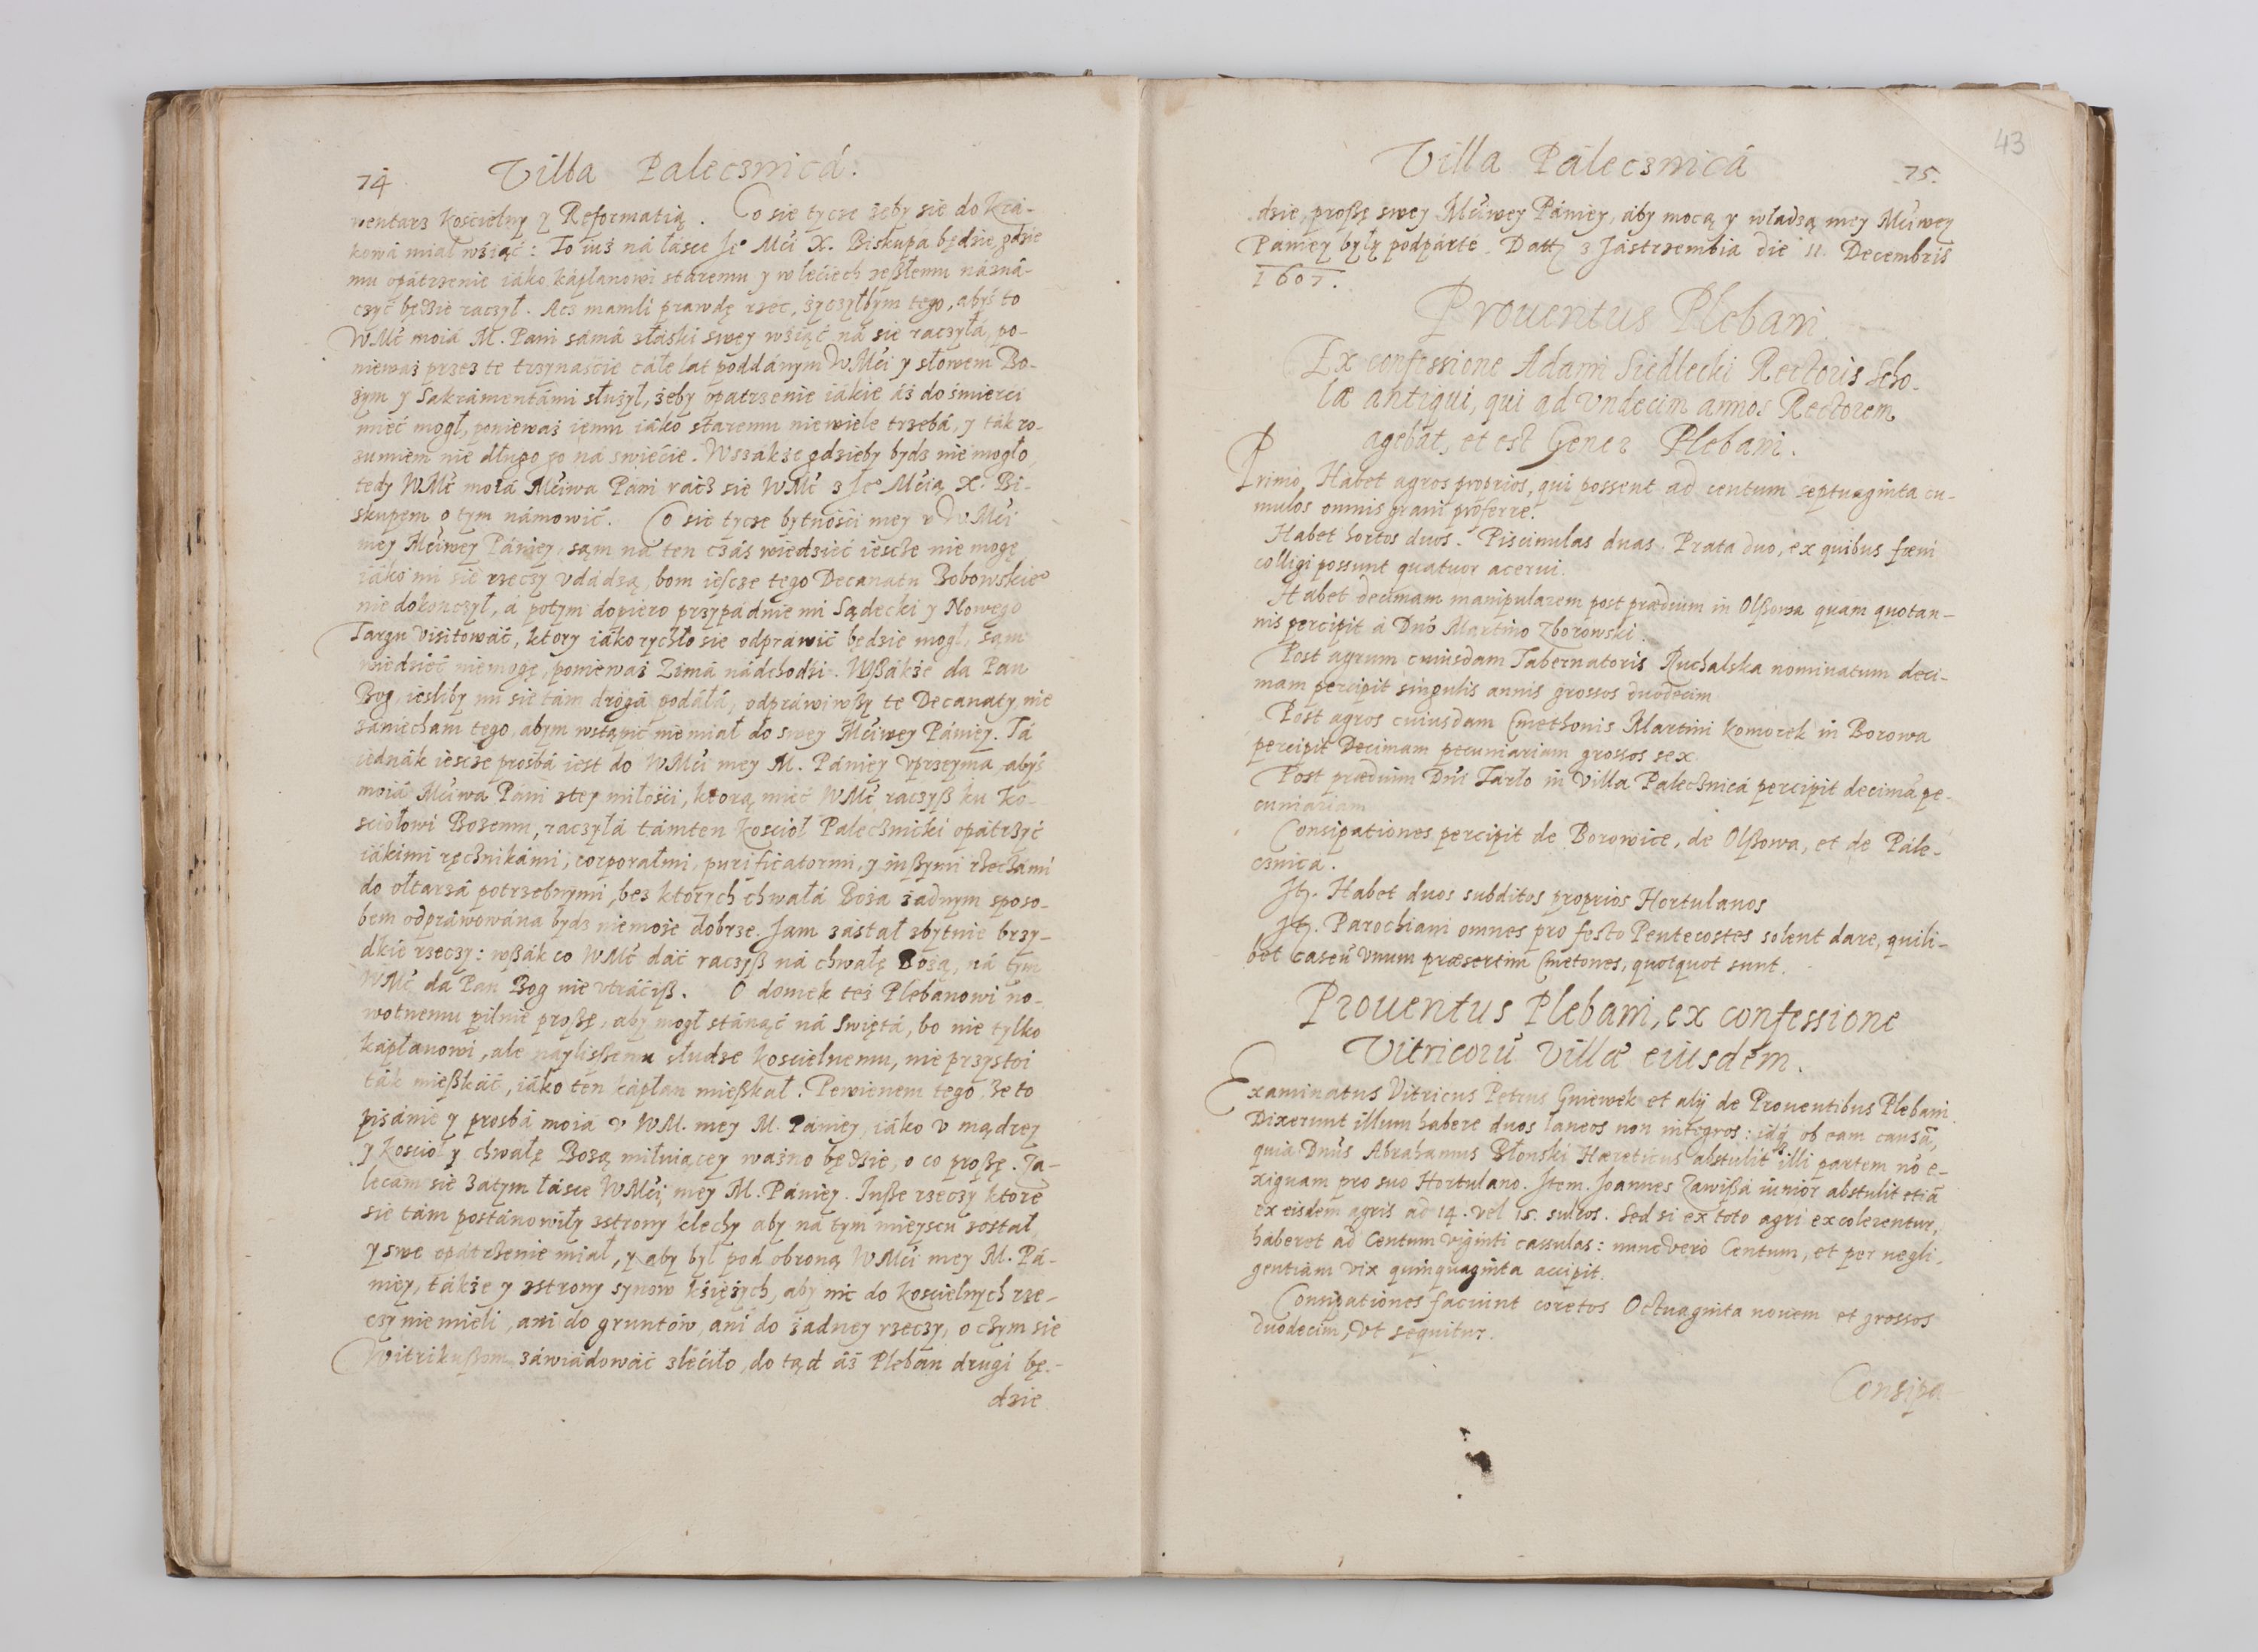 74 Villa Palecznicá.
wentarz kościelny y Reformatią. Co sie tycze żeby sie do Krá-
kowá miał wźiąć: To iuż ná łásce Je° Mći X. Biskupá będzie, gdzie
mu opátrzenie iáko kápłanowi stáremu y w lećiech zeszłemu názná-
czyć będzie raczył. Acz mamli prawdę rzec, życzyłbym tego, abyś to
WMć moiá M. Páni sámá złáski swey wźiąć ná sie raczyłá, po-
nieważ przez te trzynaście cáłe lat poddánym WMći y słowem Bo-
żym y Sakrámentámi służył, żeby opatrzenie iákie áż do śmierci
mieć mogł, ponieważ iemu iáko stáremu nie wiele trzebá, y ták ro-
zumiem nie długo go ná swiećie. Wszákże gdzieby bydz nie mogło,
tedy WMć moiá Mćiwa Páni racz sie WMć z Je° Mćią X. Bi-
skupem o tym námowić. Co sie tycze bytnośći mey v WMći
mey Mćiwey Pániey, sąm ná ten czás wiedzieć iescze nie mogę
iáko mi sie rzeczy vdádzą, bom iescze tego Decanatu Bobowskie°
nie dokończył, á potym dopiero przypádnie mi Sądecki y Nowego
Targu visitowáć, ktory iáko rychło sie odpráwić będzie mogł, sąm
wiedzieć niemogę, ponieważ Zimá nádchodzi. Wszákże da Pan
Bog, iesliby mi sie tám drogá podáłá, odpráwiwszy te Decanaty, nie
zániecham tego, abym wstąpić nie miał do swey Mćiwey Pániey. Tá
iednák iescze prośbá iest do WMći mey M. Pániey vprzeyma, abyś
moiá Mćiwa Páni z tey miłośći, ktorą mieć WMć raczysz ku Ko-
sciołowi Bożemu, raczyłá támten kościoł Palecznicki opátrzyć
iákimi ręcznikámi, corporałmi, purificatormi, y inszymi rzeczámi
do ołtarzá potrzebnymi, bez ktorych chwałá Boża żadnym sposo-
bem odpráwowána bydz niemoże dobrze. Jam zástał zbytnie brzy-
dkie rzeczy: wszák co WMć dáć raczysz ná chwałę Bożą, ná tym
WMć da Pan Bog nie vtráćisz. O domek też Plebanowi no-
wotnemu pilnie proszę, aby mogł stánąć ná Swiętá, bo nie tylko
kápłanowi, ale naylissemu słudze kościelnemu, nie przystoi
ták mieszkáć, iáko ten kápłan mieszkał. Pewienem tego, że to
pisánie y prosbá moiá v WM. mey M. Pániey, iáko v mądrey
y kościoł y chwałę Bożą miłuiącey ważno będzie, o co proszę. Za-
lecám sie zatym łásce WMći, mey M. Pániey. Insze rzeczy ktore
sie tám postánowiły zstrony klechy aby ná tym mieyscu został,
y swe opátrzenie miał, y aby był pod obroną WMći mey M. Pá-
niey, tákże y zstrony synow księżych, aby nic do kościelnych rze-
czy nie mieli, ani do gruntów, ani do żadney rzeczy, o czym sie
Witrikuszom záwiádowáć zlećiło, do tąd áż Pleban drugi bę-
dzie
43
Villa Pálecznicá 75.
dzie, proszę swey Mćiwey Pániey, áby mocą y władzą mey Mćiwey
Pániey były podpárté. Datt z Jástrzembia die 11. Decembris
1607.
Prouentus Plebani.
Ex confessione Adami Siedlecki Rectoris Scho-
læ antiqui, qui ad vndecim annos Rectorem
agebat, et est Gener Plebani.
Primo, Habet agros proprios, qui possent ad centum septuaginta cu-
mulos omnis grani proferre.
Habet hortos duos. Piscinulas duas. Prata duo, ex quibus fœni
colligi possunt quatuor acerui.
Habet decimam manipularem post prædium in Olszowa quam quotan-
nis percipit à Dno Martino Zborowski.
Post agrum cuiusdam Tabernatoris Ruchalska nominatum deci-
mam percipit singulis annis grossos duodecim
Post agros cuiusdam Cmethonis Martini Komorek in Borowa
percipit Decimam pecuniariam grossos sex
Post prædium Dni Tarło in Villa Palecznicá percipit decimā pe-
cuniariam
Consipationes percipit de Borowice, de Olszowa, et de Pále-
cznicá.
Itē. Habet duos subditos proprios Hortulanos
Itē. Parochiani omnes pro festo Pentecostes solent dare, quili-
bet Caseū vnum præsertim Cmetones, quotquot sunt.
Prouentus Plebani, ex confessione
Vitricorū villæ eiusdem.
Examinatus Vitricus Petrus Gniewek et alij de Prouentibus Plebani
Dixerunt illum habere duos laneos non integros: idq ob eam causā,
quia Dnus Abrahamus Błonski Hæreticus abstulit illi partem nō e-
xiguam pro suo Hortulano. Item. Joannes Zawiszá iunior abstulit etiā
ex eisdem agris ad 14. vel 15. sulcos. Sed si ex toto agri excolerentur,
haberet ad Centum viginti cassulas: nunc vero Centum, et per negli-
gentiam vix quinquaginta accipit.
Consipationes faciunt coretos Octuaginta nouem et grossos
duodecim, vt sequitur.
Consipa